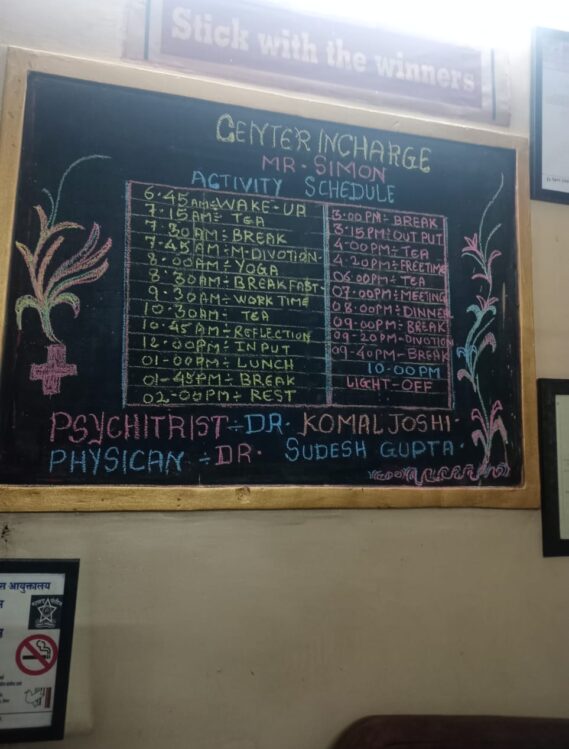 Stick with the winners
CENTER INCHARGE
MR. SIMON
ACTIVITY SCHEDULE
6.45AM÷WAKE-UP
7.15AM÷ TEA
7.30AM÷ BREAK
7.45AM÷M.DIVOTION
8.00AM÷ YOGA
8.30AM÷BREAKFAST
9.30AM÷WORK TIME
10.30AM÷ TEA
10.45AM÷REFLECTION
12.00PM÷ INPUT
01-00PM÷ LUNCH
01-45PM÷ BREAK
02-00PM÷ REST
3.00PM÷ BREAK
3.15PM÷OUTPUT
4.00PM÷ TEA
4.20PM÷FREETIME
06.00PM÷ TEA
07.00PM÷MEETING
08.00PM÷DINNER
09.00PM÷ BREAK
09-20PM-DIVOTION
09-40PM- BREAK
10.00PM
LIGHT-OFF
PSYCHITRIST÷DR. KOMALJOSHI.
PHYSICAN ÷DR. SUDESH GUPTA.
स आयुक्तालय